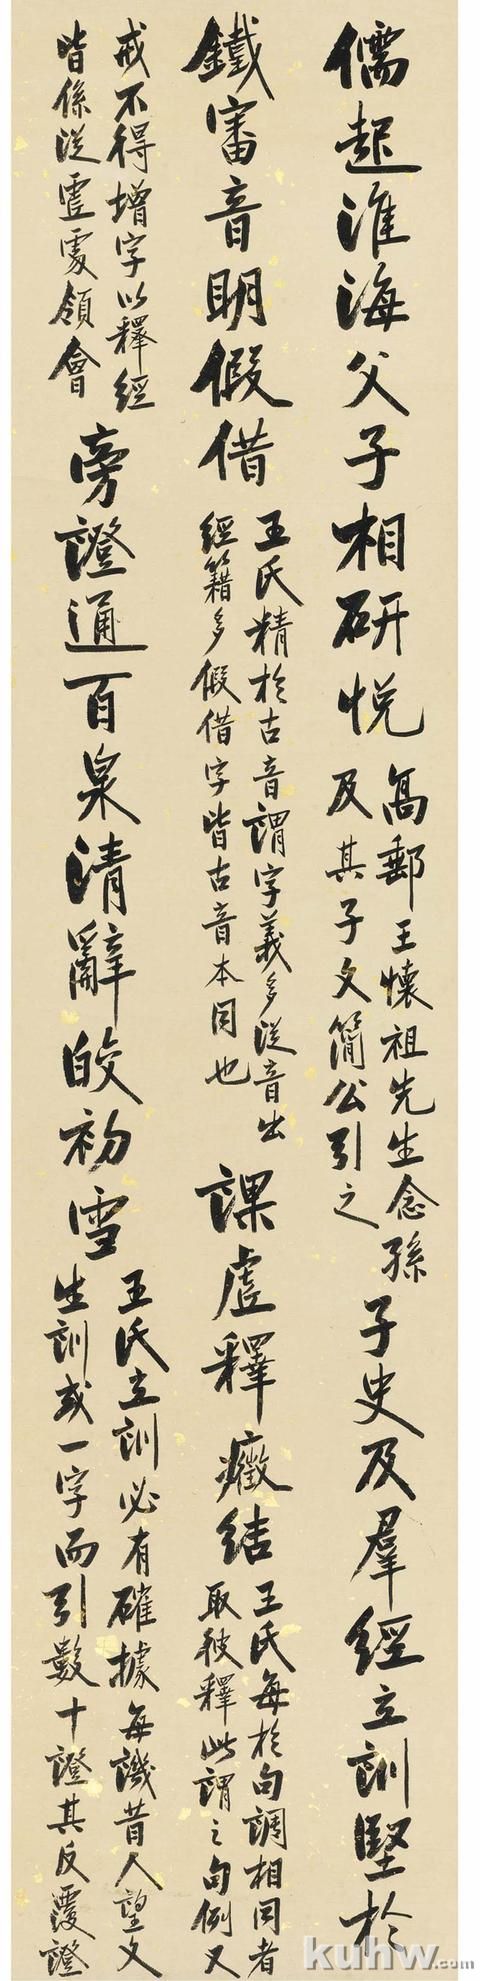 儒起淮海父子相研悅
高郵王懷祖先生念孫
及其子文簡公引之
子史及羣經立訓堅於
鐵審音明假借
王氏精於古音謂字義多從音出
經籍多假借字皆古音本同也
課虛釋癥結
王氏每於句調相同者
取彼釋此謂之句例又
戒不得增字以釋經
皆係從虛處領會
旁證通百泉清辭皎初雪
王氏立訓必有確據每譏昔人望文
生訓或一字而引數十證其反覆證
kuhw.com